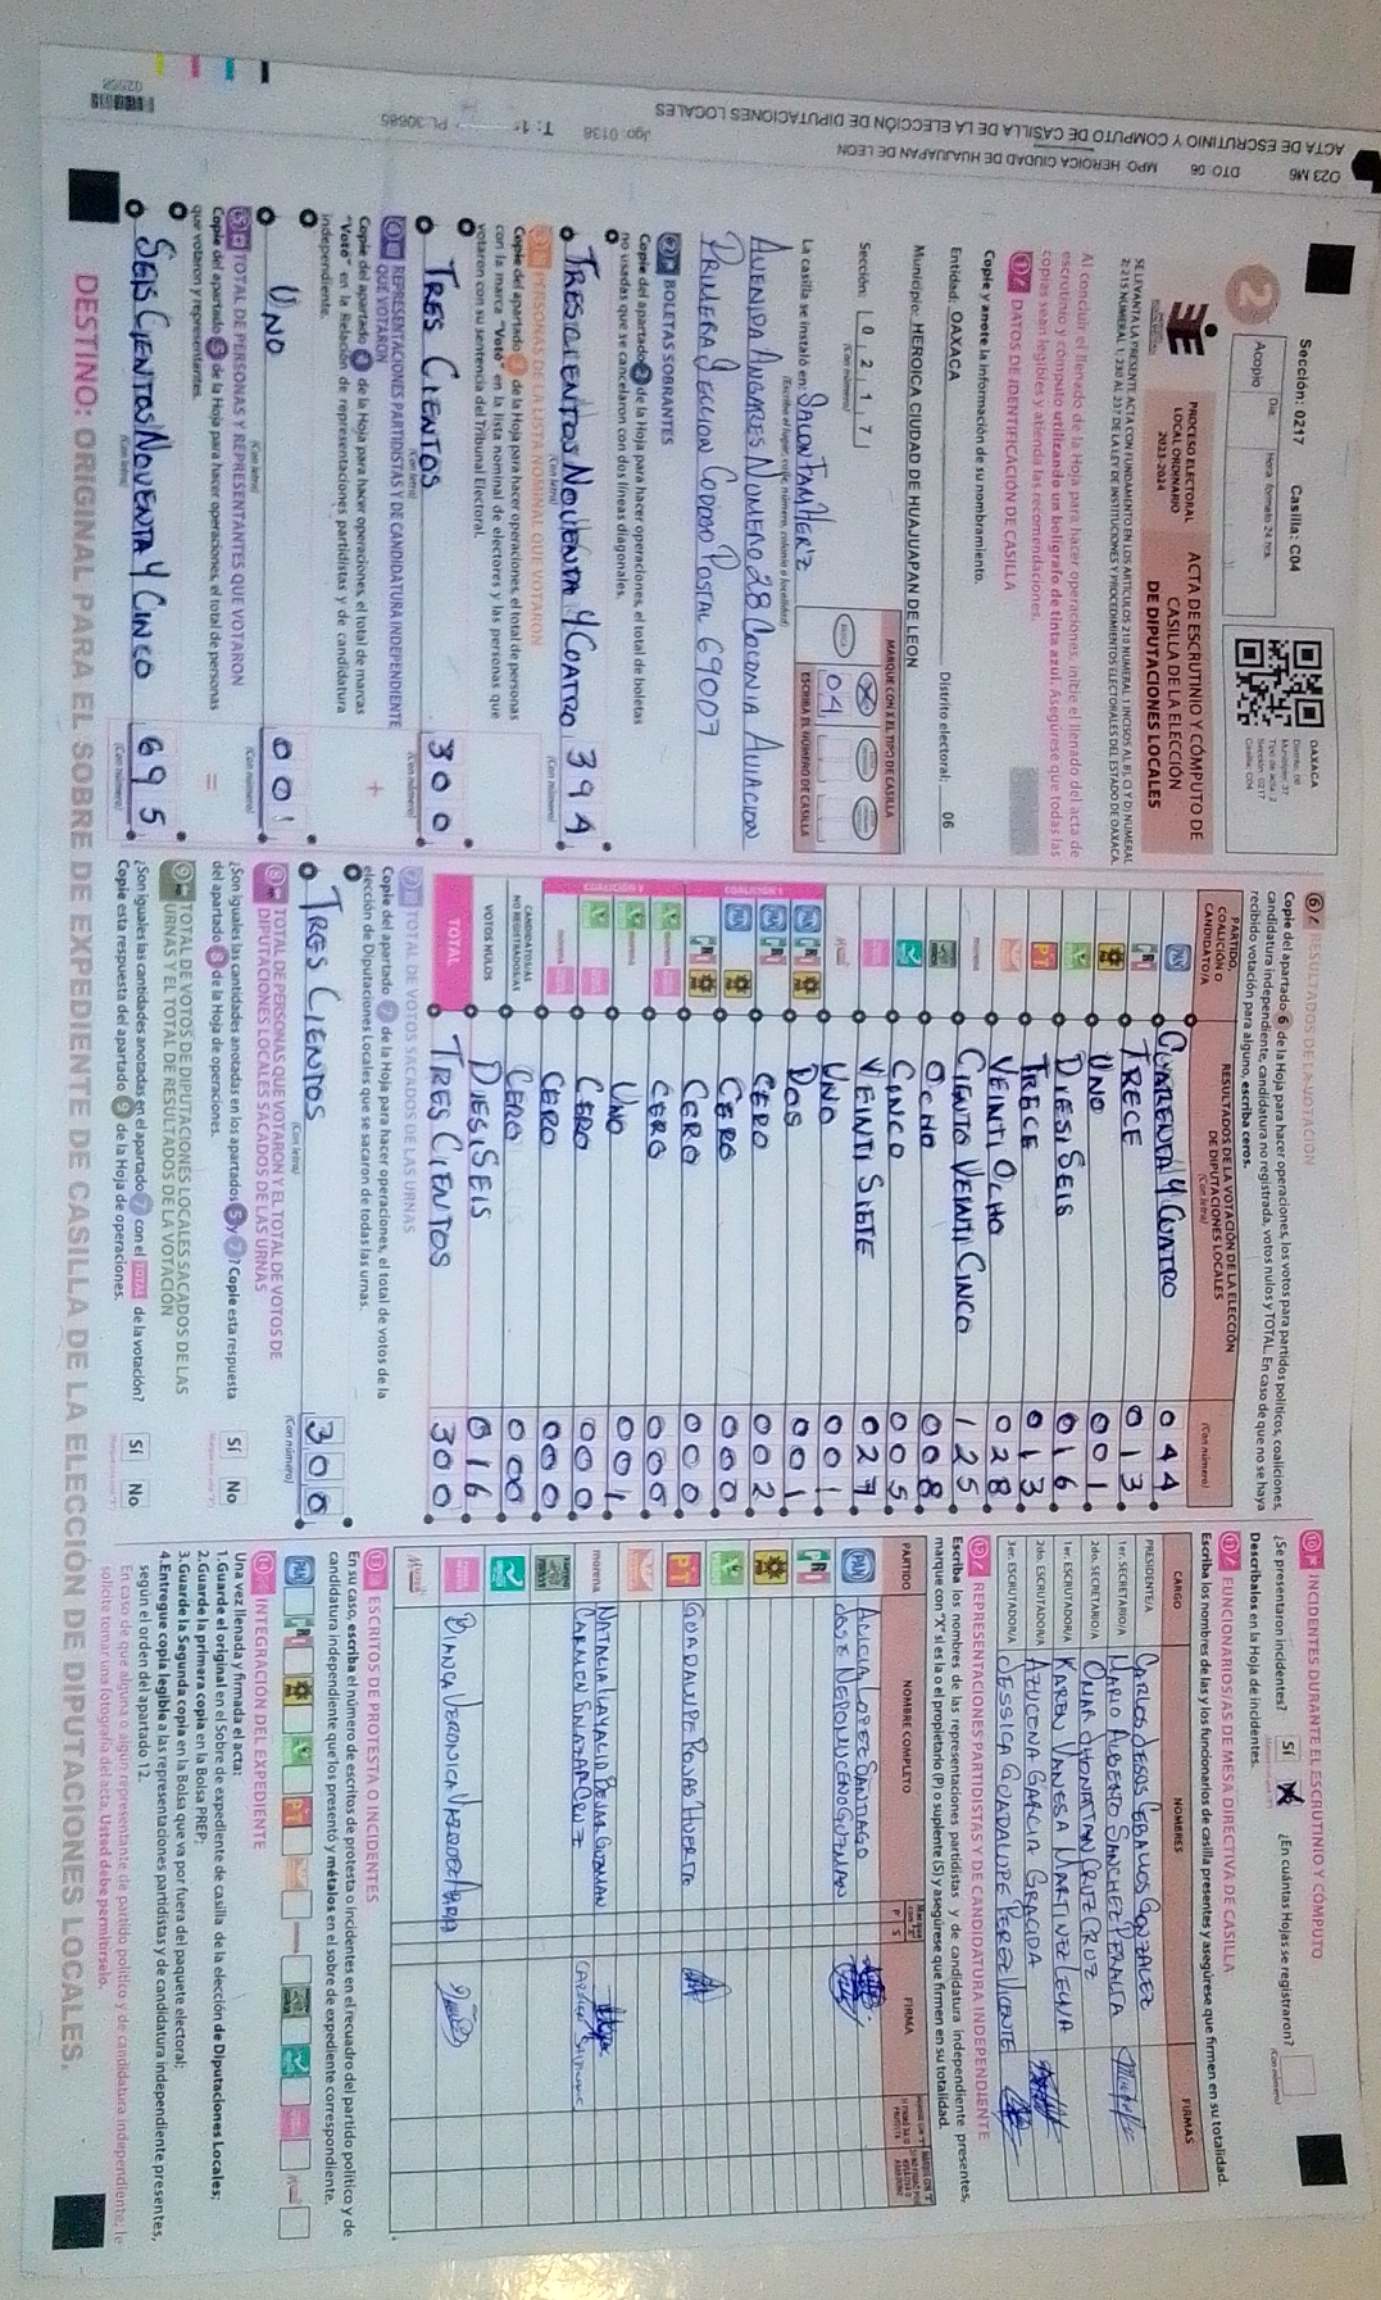 023 M6 DTO: 06 MPO: HEROICA CIUDAD DE HUAJUAPAN DE LEON Jgo: 0136 PL-30685
ACTA DE ESCRUTINIO Y COMPUTO DE CASILLA DE LA ELECCIÓN DE DIPUTACIONES LOCALES
02558
Sección: 0217 Casilla: C04
2
Día: Hora formato 24 hrs.
Acopio
OAXACA
Distrito: 06
Municipio: 37
Tipo de acta: 2
Sección: 0217
Casilla: C04
PROCESO ELECTORAL
LOCAL ORDINARIO
2023-2024
ACTA DE ESCRUTINIO Y CÓMPUTO DE
CASILLA DE LA ELECCIÓN
DE DIPUTACIONES LOCALES
Al concluir el llenado de la Hoja para hacer operaciones, inicie el llenado del acta de
escrutinio y cómputo utilizando un bolígrafo de tinta azul. Asegúrese que todas las
copias sean legibles y atienda las recomendaciones.
1 DATOS DE IDENTIFICACIÓN DE CASILLA
Copie y anote la información de su nombramiento.
Entidad: OAXACA Distrito electoral: 06
Municipio: HEROICA CIUDAD DE HUAJUAPAN DE LEON
Sección: 0 2 1 7
(Con número)
MARQUE CON X EL TIPO DE CASILLA
BÁSICA
04
ESCRIBA EL NÚMERO DE CASILLA
La casilla se instaló en: SALON FAM HER'Z
(Escriba el lugar, calle, número, colonia o localidad)
AVENIDA ANGARES NOMERO 28 COCONIA AVIACION
PRIMERA SECCION CODIGO POSTAL 69007
2 BOLETAS SOBRANTES
Copie del apartado 2 de la Hoja para hacer operaciones, el total de boletas
no usadas que se cancelaron con dos líneas diagonales.
TRESICIENTOS NOVENTA Y COATRO 394
(Con letra) (Con número)
3 PERSONAS DE LA LISTA NOMINAL QUE VOTARON
Copie del apartado 3 de la Hoja para hacer operaciones, el total de personas
con la marca "Votó" en la lista nominal de electores y las personas que
votaron con su sentencia del Tribunal Electoral.
TRES CIENTOS 300
(Con letra) (Con número)
4 REPRESENTACIONES PARTIDISTAS Y DE CANDIDATURA INDEPENDIENTE
QUE VOTARON
+
Copie del apartado 4 de la Hoja para hacer operaciones, el total de marcas
"Votó" en la Relación de representaciones partidistas y de candidatura
independiente.
UNO 001
(Con letra) (Con número)
5 TOTAL DE PERSONAS Y REPRESENTANTES QUE VOTARON
=
Copie del apartado 5 de la Hoja para hacer operaciones, el total de personas
que votaron y representantes.
SEIS CIENTOS NOVENTA Y CINCO 695
(Con letra) (Con número)
6 RESULTADOS DE LA VOTACIÓN
Copie del apartado 6 de la Hoja para hacer operaciones, los votos para partidos políticos, coaliciones,
candidatura independiente, candidatura no registrada, votos nulos y TOTAL. En caso de que no se haya
recibido votación para alguno, escriba ceros.
PARTIDO, COALICIÓN O CANDIDATO/A
RESULTADOS DE LA VOTACIÓN DE LA ELECCIÓN
DE DIPUTACIONES LOCALES
(Con letra) (Con número)
PAN CUARENTA Y CUATRO 044
PRI TRECE 013
PRD UNO 001
DIESI SEIS 016
PT TRECE 013
VEINTI OCHO 028
morena CIENTO VEINTI CINCO 125
OCHO 008
CINCO 005
VEINTI SIETE 027
UNO 001
PAN PRI PRD DOS 001
PAN PRI CERO 002
PAN PRD CERO 000
PRI PRD CERO 000
CERO 000
UNO 001
CERO 000
CERO 000
CANDIDATOS/AS
NO REGISTRADOS/AS CERO 000
VOTOS NULOS DIESISEIS 016
TOTAL TRES CIENTOS 300
7 TOTAL DE VOTOS SACADOS DE LAS URNAS
Copie del apartado 7 de la Hoja para hacer operaciones, el total de votos de la
elección de Diputaciones Locales que se sacaron de todas las urnas.
TRES CIENTOS 300
(Con letra) (Con número)
8 TOTAL DE PERSONAS QUE VOTARON Y EL TOTAL DE VOTOS DE
DIPUTACIONES LOCALES SACADOS DE LAS URNAS
¿Son iguales las cantidades anotadas en los apartados 5 y 7? Copie esta respuesta
del apartado 8 de la Hoja de operaciones.
Sí No
9 TOTAL DE VOTOS DE DIPUTACIONES LOCALES SACADOS DE LAS
URNAS Y EL TOTAL DE RESULTADOS DE LA VOTACIÓN
¿Son iguales las cantidades anotadas en el apartado 7 con el TOTAL de la votación?
Copie esta respuesta del apartado 9 de la Hoja de operaciones.
Sí No
10 INCIDENTES DURANTE EL ESCRUTINIO Y CÓMPUTO
¿Se presentaron incidentes? Sí ¿En cuántas Hojas se registraron?
(Con número)
Descríbalos en la Hoja de incidentes.
11 FUNCIONARIOS/AS DE MESA DIRECTIVA DE CASILLA
Escriba los nombres de las y los funcionarios de casilla presentes y asegúrese que firmen en su totalidad.
CARGO NOMBRES FIRMAS
PRESIDENTE/A CARLOS JESUS CEBALLOS GONZALEZ
1er. SECRETARIO/A MARIO ALBERTO SANCHEZ PERALTA
2do. SECRETARIO/A ONAR JHONATAN CRUZ CRUZ
1er. ESCRUTADOR/A KAREN VANESA MARTINEZ LECHIA
2do. ESCRUTADOR/A AZUCENA GARCIA GRACIDA
3er. ESCRUTADOR/A JESSICA GUADALUPE PEREZ VICENTE
12 REPRESENTACIONES PARTIDISTAS Y DE CANDIDATURA INDEPENDIENTE
Escriba los nombres de las representaciones partidistas y de candidatura independiente presentes,
marque con "X" si es la o el propietario (P) o suplente (S) y asegúrese que firmen en su totalidad.
PARTIDO NOMBRE COMPLETO P S FIRMA
PAN ALICIA LOPEZ SANTIAGO
JOSE NEPOMUCENO GUZMAN
PRI
PRD
PT GUADALUPE ROJAS HUERTA
morena NATALIA
CARMEN SALAZAR CRUZ
BIANCA VERONICA
13 ESCRITOS DE PROTESTA O INCIDENTES
En su caso, escriba el número de escritos de protesta o incidentes en el recuadro del partido político y de
candidatura independiente que los presentó y métalos en el sobre de expediente correspondiente.
PAN PRI PRD PT
14 INTEGRACIÓN DEL EXPEDIENTE
Una vez llenada y firmada el acta:
1.Guarde el original en el Sobre de expediente de casilla de la elección de Diputaciones Locales;
2.Guarde la primera copia en la Bolsa PREP;
3.Guarde la Segunda copia en la Bolsa que va por fuera del paquete electoral;
4.Entregue copia legible a las representaciones partidistas y de candidatura independiente presentes,
según el orden del apartado 12.
En caso de que alguna o algún representante de partido político y de candidatura independiente, le
solicite tomar una fotografía del acta. Usted debe permitírselo.
DESTINO: ORIGINAL PARA EL SOBRE DE EXPEDIENTE DE CASILLA DE LA ELECCIÓN DE DIPUTACIONES LOCALES.